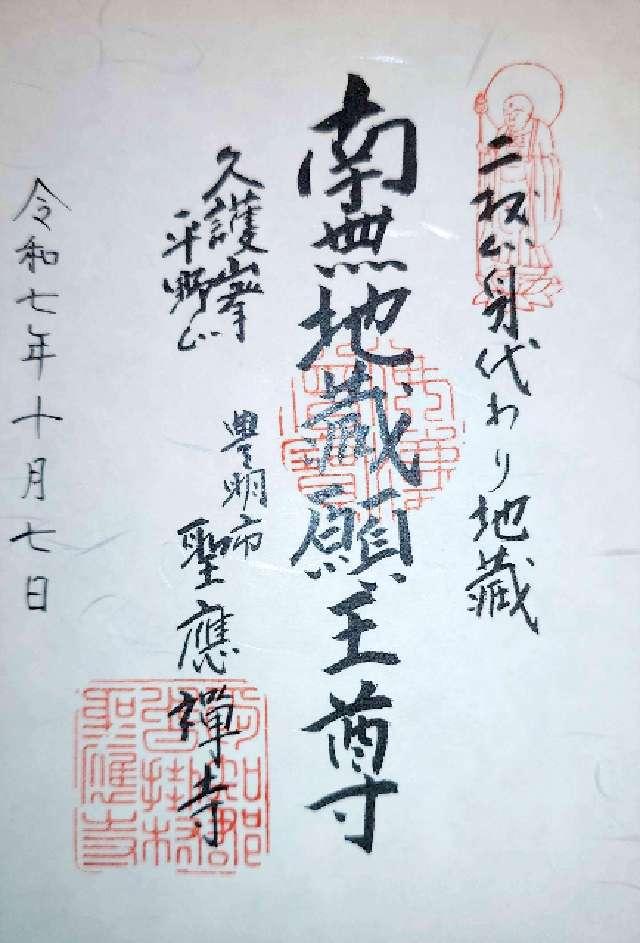 二村山身代わり地蔵
南無地蔵願王尊
久護峯
平野山
豊明市
聖應禅寺
令和七年十月七日